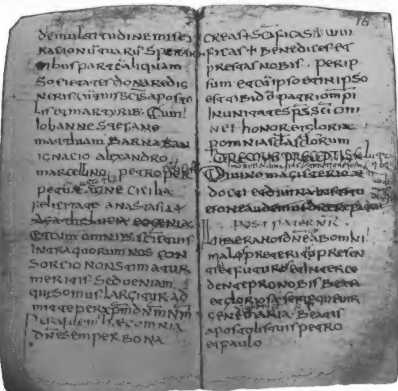 demultitudinemiser
rationū tuarū sperā
tibus partē aliquam
Societates donaredig
neris cū tuis scīs aposto
lis et martyrib; Cum
Iohanne Stefano
mathiam Barnaban
ignacio alexandro
marcellino petro per
petua agne cicilia
felicitate anastasia
agathe lucia eogenia
et cum omnib; scīs tuis
intra quorum nos con
sortio non stimatur
meritis sed ueniam
quesumus largitur ad
mitte per xpm dnm nrm
per quem haec omnia
dne semper bona
creas + scificas uiui
ficas + benedices et
prestas nobis . per ip
sum et cū ipso et in ipso
est tibi dō patri ompi
in unitate sps sci om
nis honor et gloria
p omnia scla sclorum
Diuino magisterio
docti et diuina
audemus dicere pater
post pater nr
Libera nos dne ab omni
malo preterito presen
te et futuro et interce
dente pro nobis beata
et gloriosa semper uir
gene maria . beatis
apostolis tuis petro
et paulo